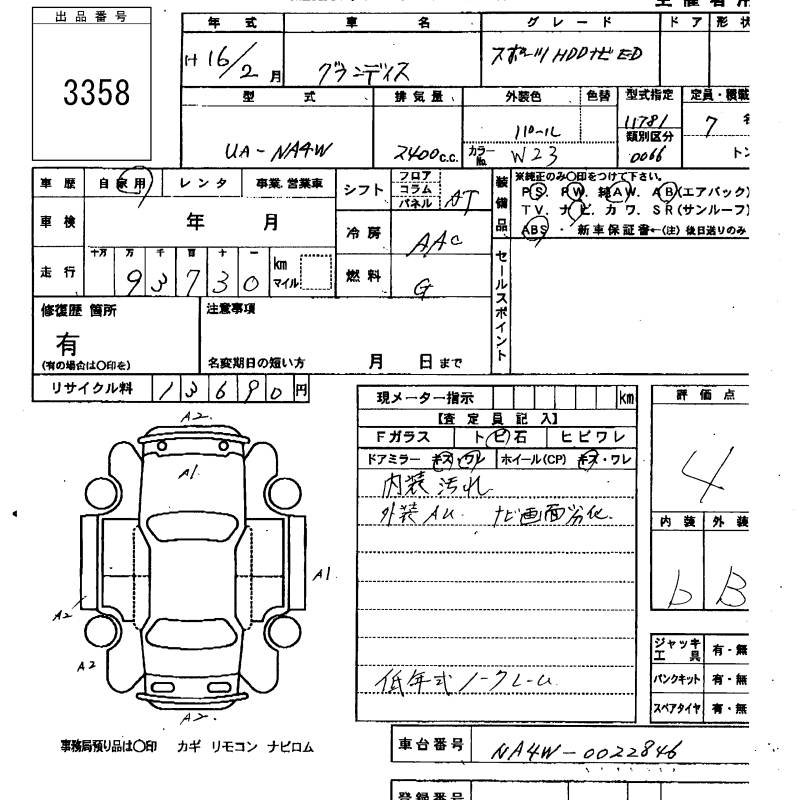 出品番号
3358
年式 車名 グレード ドア 形状
H16/2月 グランディス スポーツHDDナビED
型式 排気量 外装色 色替 型式指定 定員・積載
UA-NA4W 2400c.c. パール 11781 7名
カラーNo. W23 類別区分 0066 トン
車歴 自家用 レンタ 事業.営業車
車検 年 月
走行 十万 万 千 百 十 一 km マイル
93730
シフト フロア コラム パネル AT
冷房 AAC
燃料 G
装備品 ※純正のみ○印をつけて下さい。
PS. PW. 純AW. AB(エアバック)
TV. ナビ. カワ. SR(サンルーフ)
ABS ・ 新車保証書←(注) 後日送りのみ
セールスポイント
修復歴 箇所
有
(有の場合は○印を)
注意事項
名変期日の短い方 月 日まで
リサイクル料 13690円
現メーター指示 km
【査定員記入】
Fガラス トビ石 ヒビワレ
ドアミラー キズ・ワレ ホイール(CP) キズ・ワレ
内装汚れ
外装AU. ナビ画面劣化.
低年式ノークレーム
評価点
4
内装 外装
b B
ジャッキ工具 有・無
パンクキット 有・無
スペアタイヤ 有・無
A2.
A1
A1
A2
A2
A2.
事務局預り品は○印 カギ リモコン ナビロム
車台番号 NA4W-0022846
登録番号